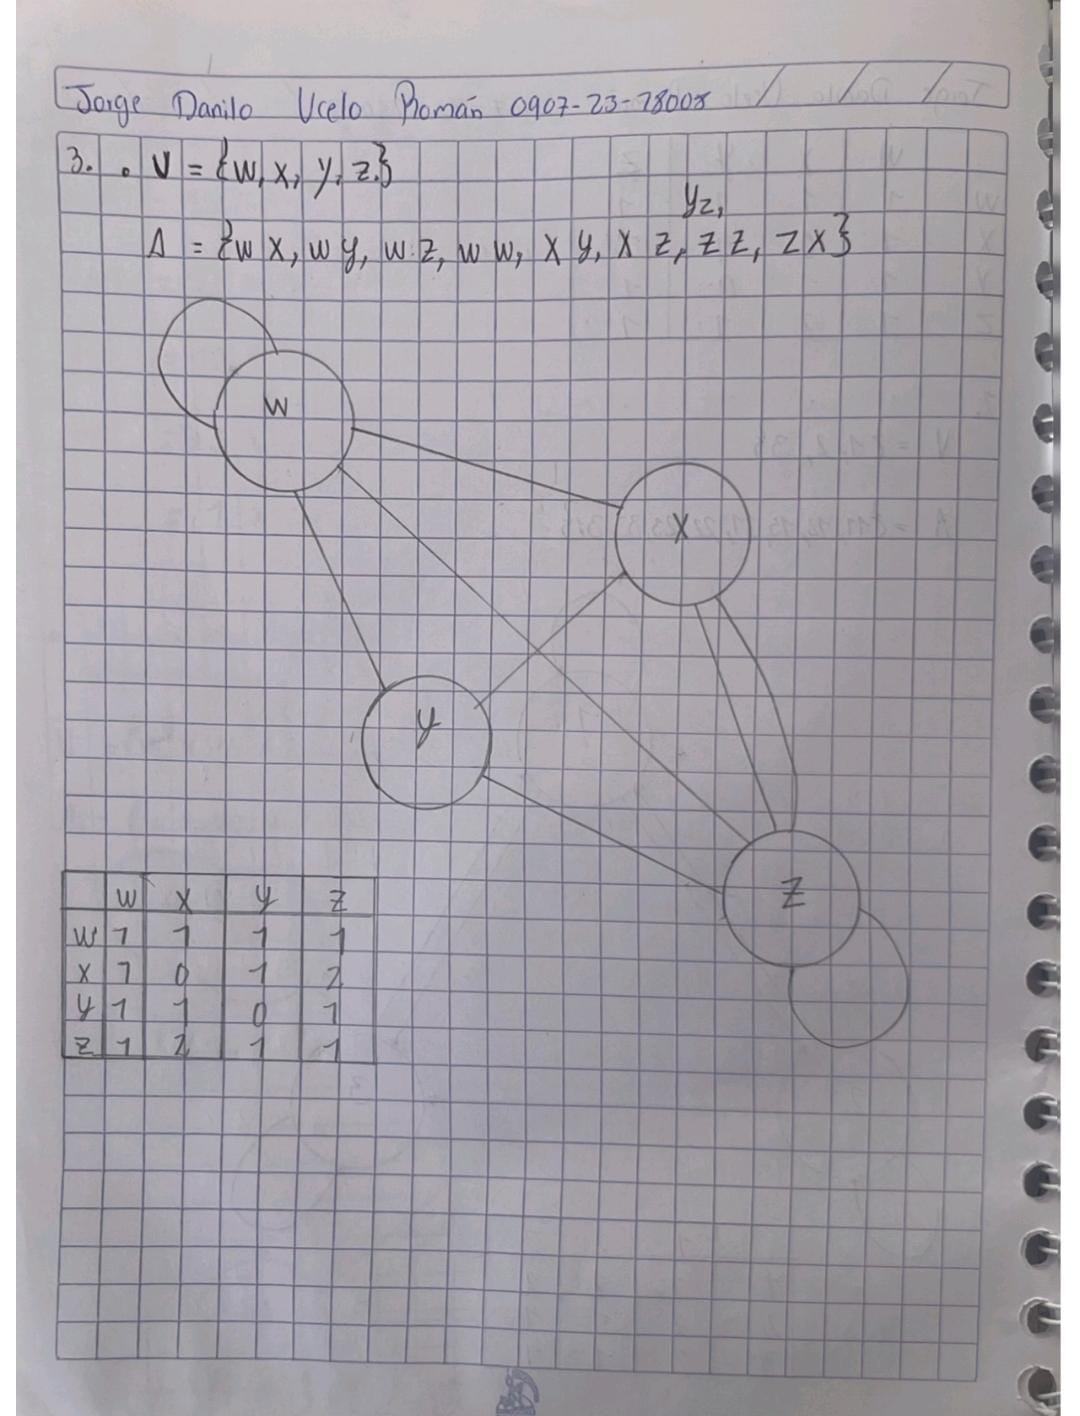 Jorge Danilo Ucelo Román 0907-23-18008 / / /
3. • V = {w, x, y, z.}
yz,
A = {wx, wy, wz, ww, xy, xz, zz, zx}
w
x
y
z
w x y z
w 1 1 1 1
x 1 0 1 2
y 1 1 0 1
z 1 2 1 1